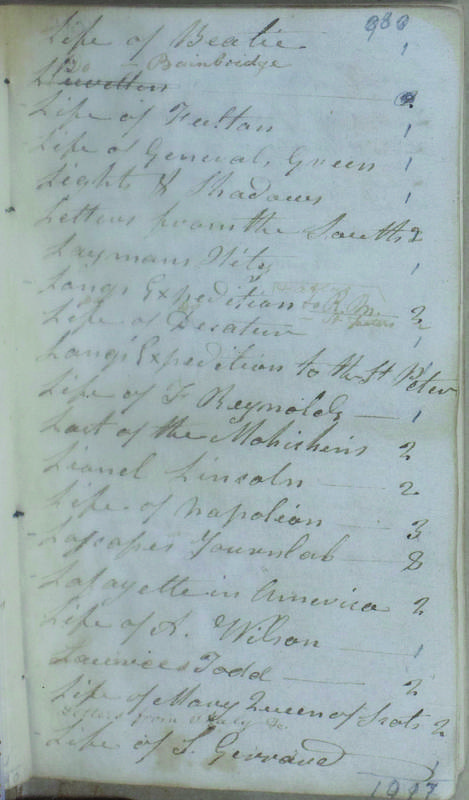 983
Life of Beatie 1
Do - Bainbridge
Llewellen 2
Life of Fulton 1
Life of General Green 1
Lights & Shadows 1
Letters from the South 2
Laymans 1
Longs Expedition to R. M. 2
St Peters 2
Life of Decature 1
Long's Expedition to the St Peter
Life of F Reynolds — 1
Last of the Mohichens 2
Lionel Lincoln — 2
Life of Napoleon — 3
Journlal — 8
Lafayette in America 2
Life of A. Wilson — 1
Todd — 2
Life of Mary Queen of Scots 2
Letters from
Life of S. 1